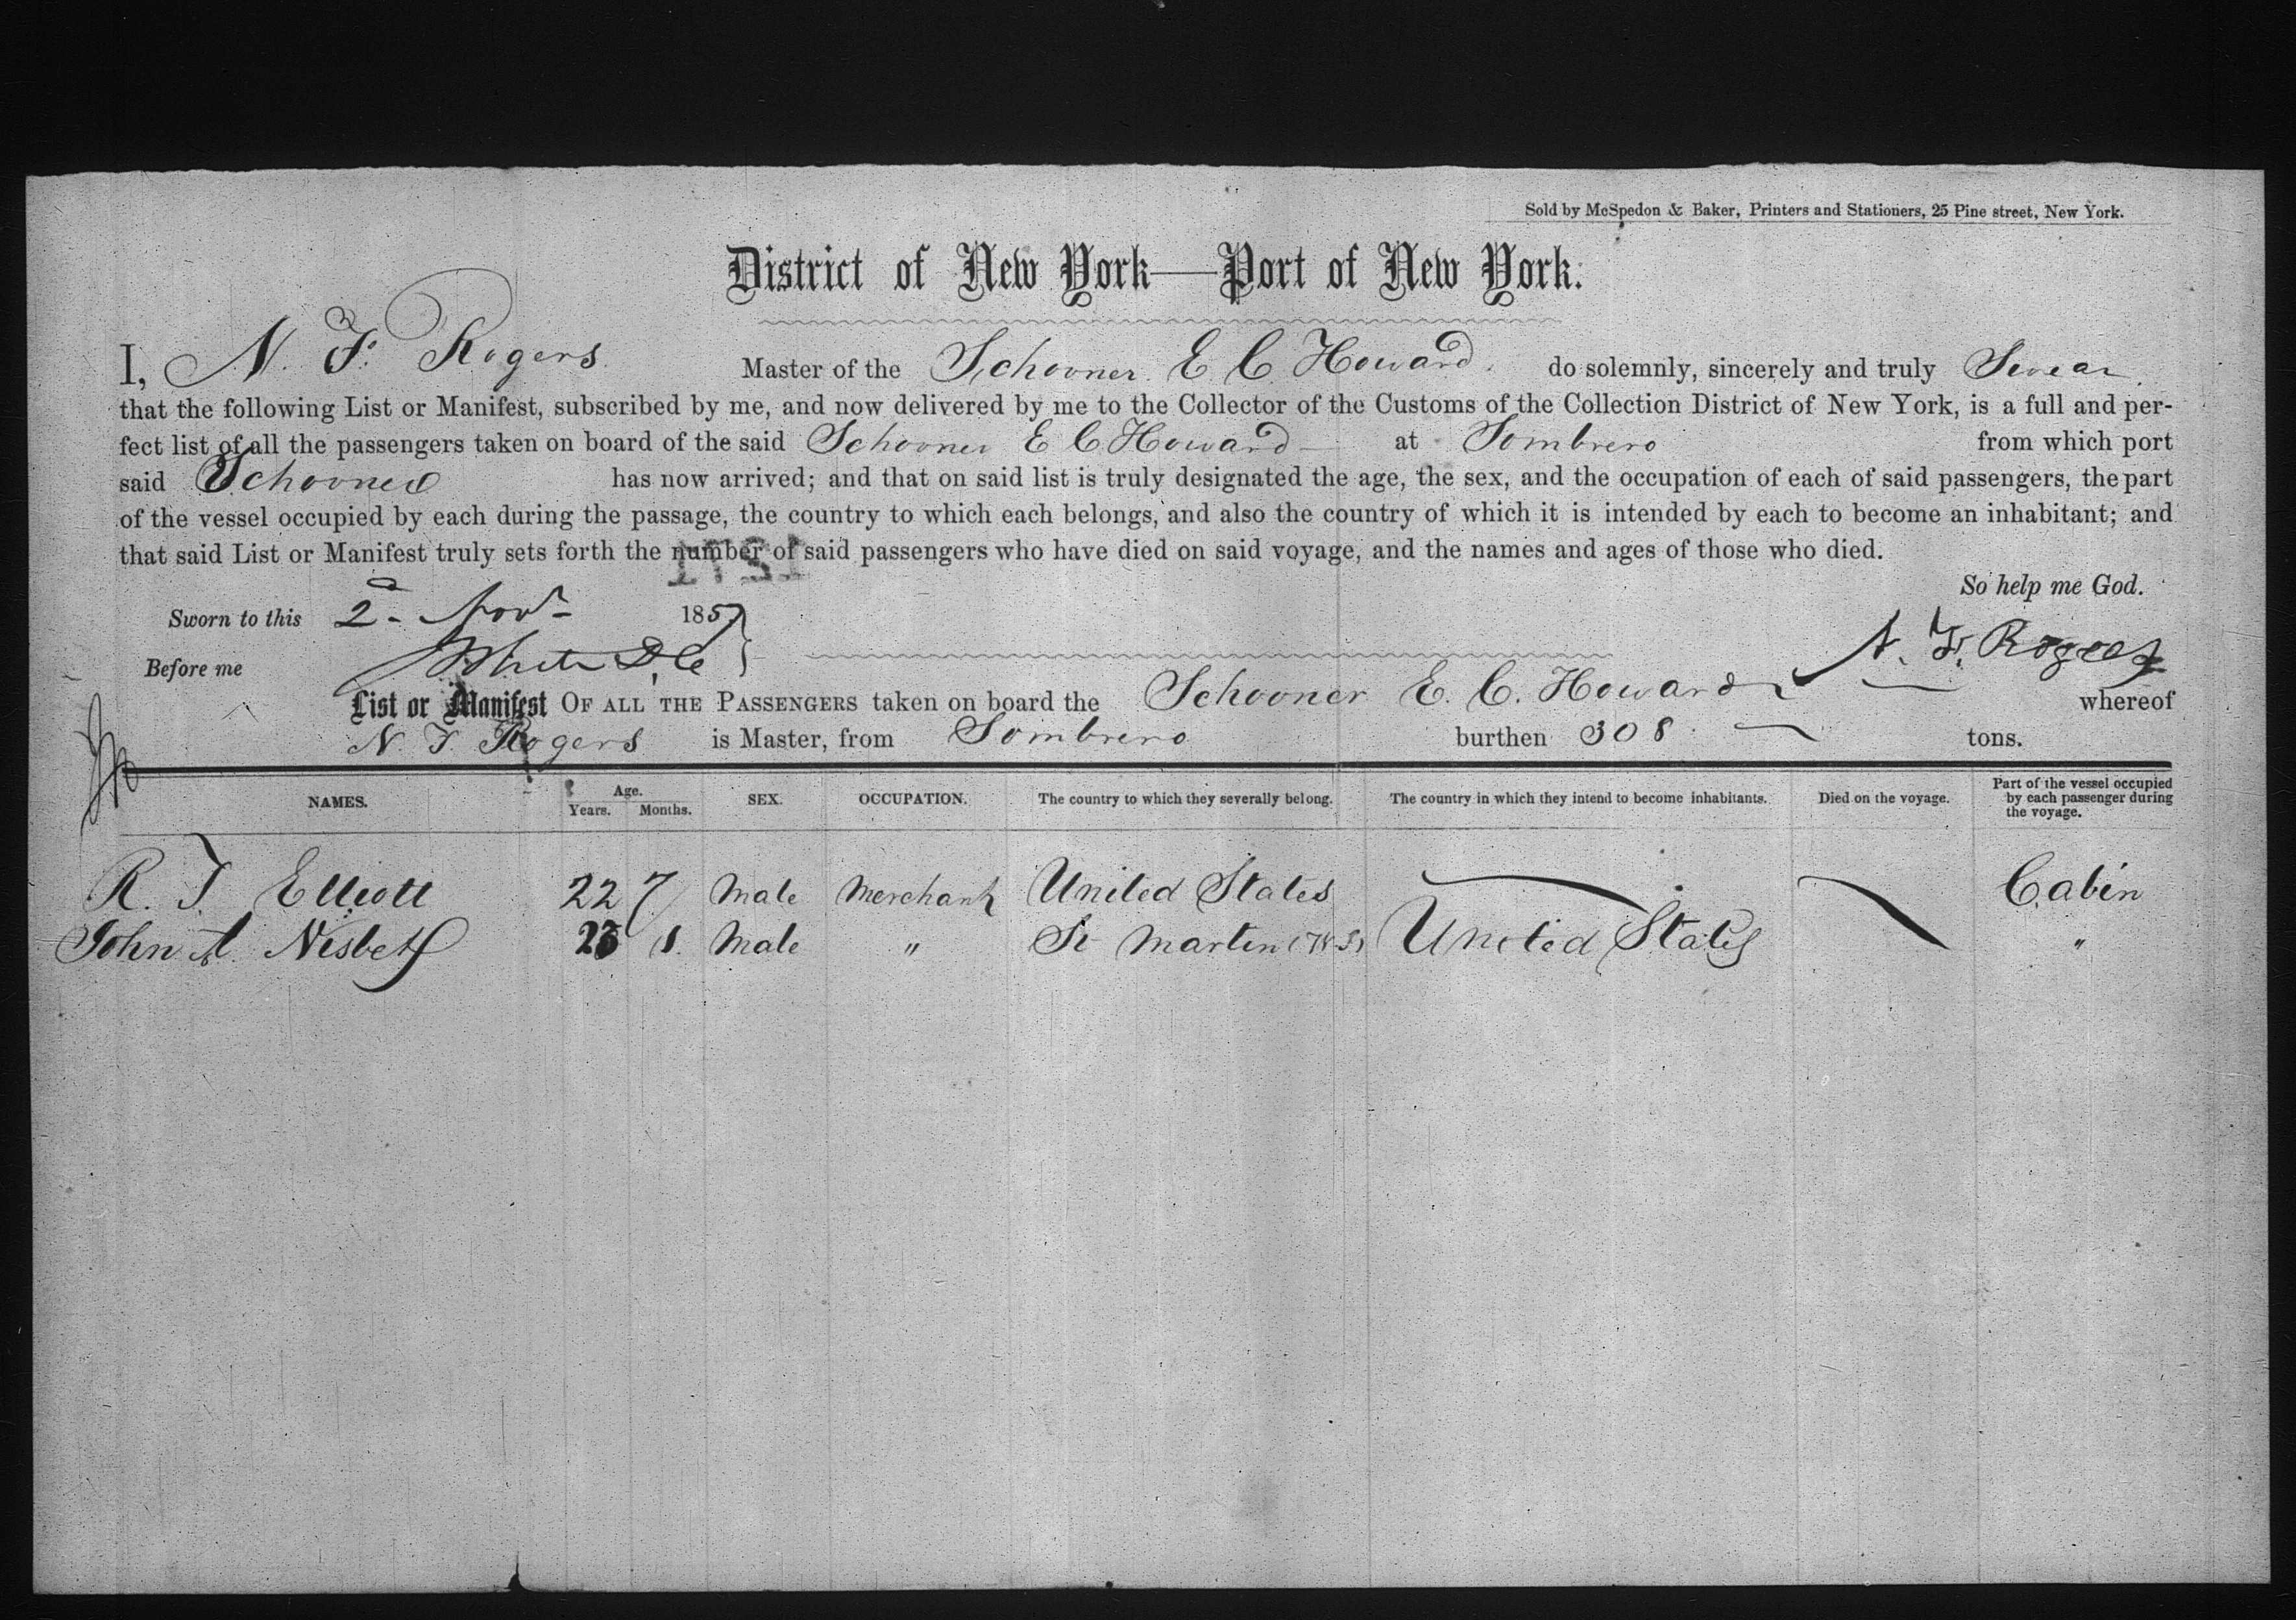 Sold by McSpedon & Baker, Printers and Stationers, 25 Pine street, New York.
District of New York—Port of New York.
I, N. F. Rogers Master of the Schooner E. C. Howard. do solemnly, sincerely and truly Swear
that the following List or Manifest, subscribed by me, and now delivered by me to the Collector of the Customs of the Collection District of New York, is a full and per-
fect list of all the passengers taken on board of the said Schooner E C Howard at Sombrero from which port
said Schooner has now arrived; and that on said list is truly designated the age, the sex, and the occupation of each of said passengers, the part
of the vessel occupied by each during the passage, the country to which each belongs, and also the country of which it is intended by each to become an inhabitant; and
that said List or Manifest truly sets forth the number of said passengers who have died on said voyage, and the names and ages of those who died.
So help me God.
Sworn to this 2d Novr 1857
Before me White D.C N. F. Rogers
List or Manifest OF ALL THE PASSENGERS taken on board the Schooner E. C. Howard whereof
N. F. Rogers is Master, from Sombrero burthen 308 tons.
NAMES. Age. Years. Months. SEX. OCCUPATION. The country to which they severally belong. The country in which they intend to become inhabitants. Died on the voyage. Part of the vessel occupied by each passenger during the voyage.
R. T Elliott 22 7 Male Merchant United States Cabin
John A. Nisbet 23 Male " St Martin United States "